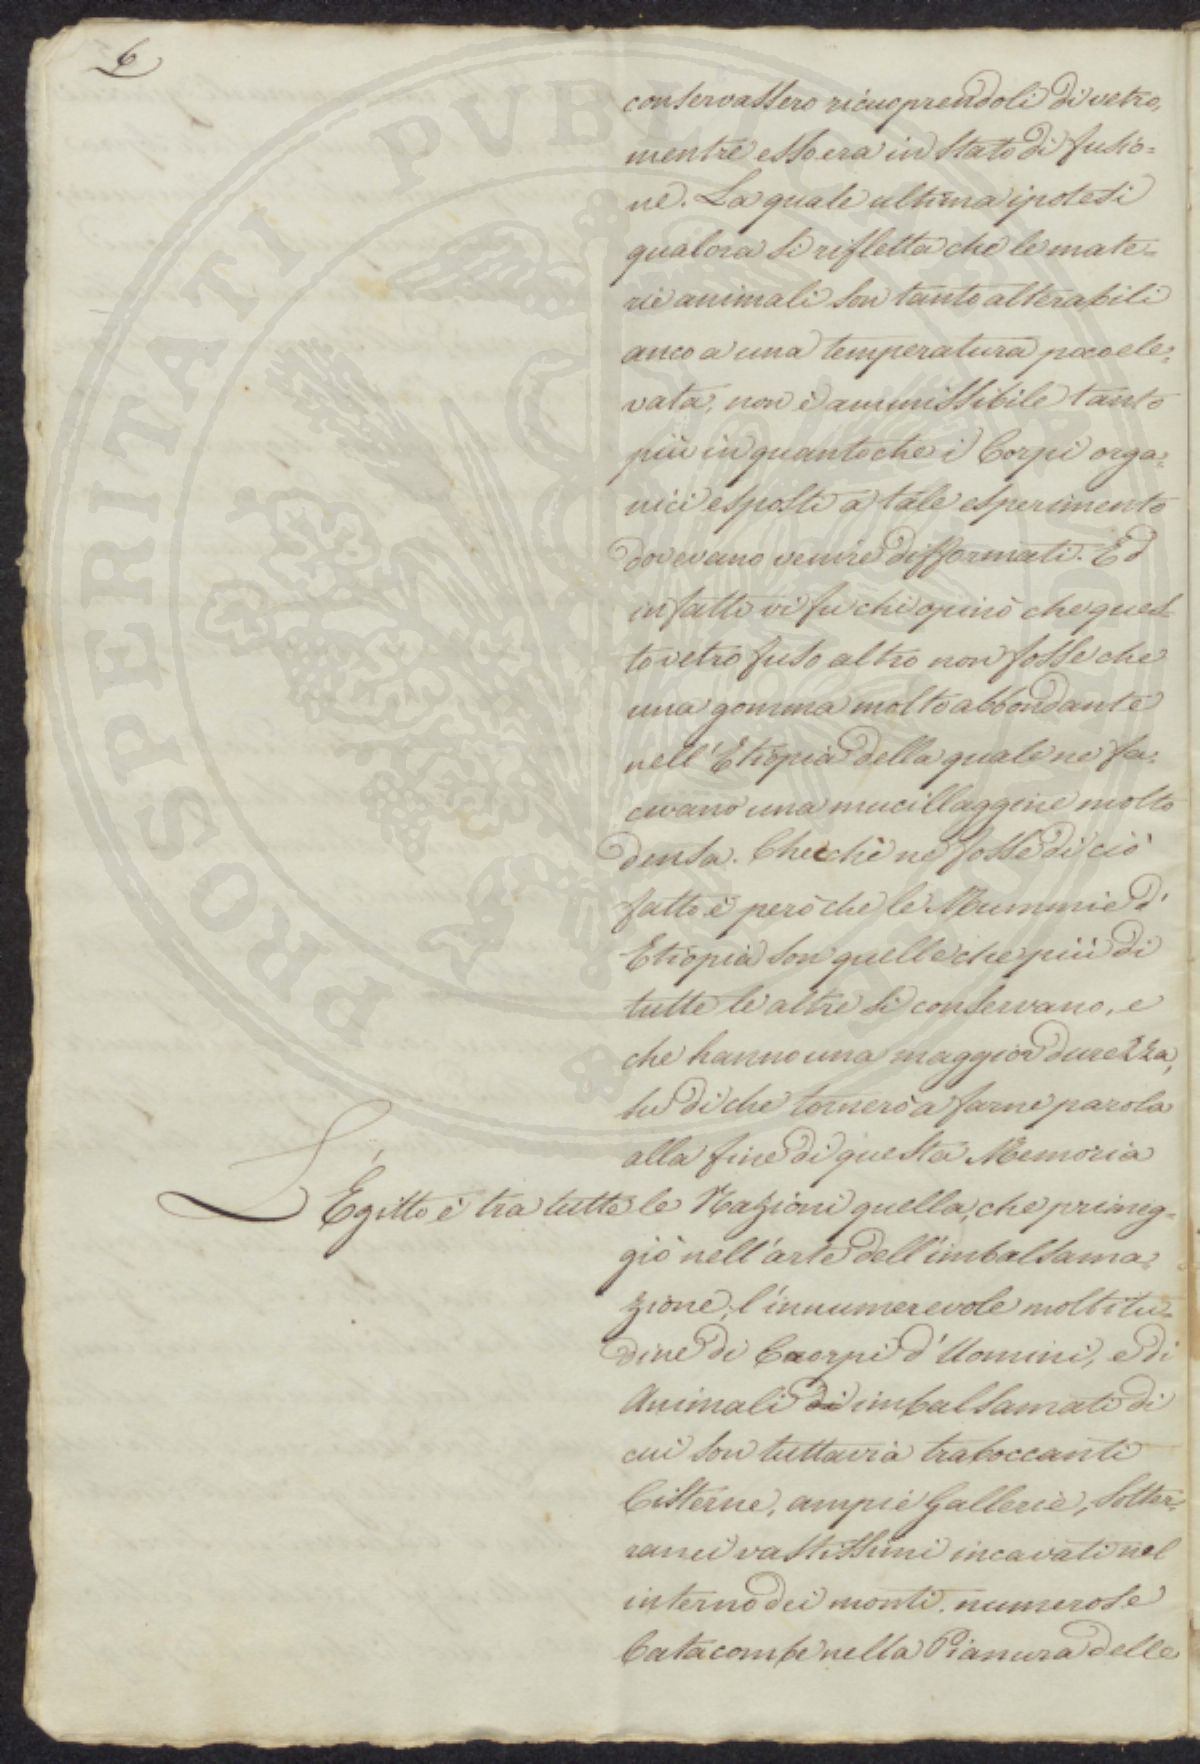 6
conservassero ricuoprendoli di vetro,
mentre esso era in stato di fusio=
ne. La quale ultima ipotesi
qualora si rifletta che le mate=
rie animali son tanto alterabili
anco a una temperatura poco ele=
vata, non è ammissibile tanto
più in quanto che i Corpi orga=
nici esposti a tale esperimento
dovevano venire difformati. Ed
in fatti vi fu chi opinò che ques=
to vetro fuso altro non fosse che
una gomma molto abbondante
nell'Etiopia della quale ne fa=
cevano una mucillaggine molto
densa. Checchè ne fosse di ciò
fatto è però che le Mummie d'
Etiopia son quelle che più di
tutte le altre si conservano, e
che hanno una maggior durezza,
su di che tornerò a farne parola
alla fine di questa Memoria
L'Egitto è tra tutte le Nazioni quella, che primeg=
giò nell'arte dell'imbalsama=
zione, l'innumerevole moltitu=
dine di Corpi d'Uomini, e di
Animali di imbalsamati di
cui son tuttavia traboccanti
Cisterne, ampie Gallerie, Sotter=
ranei vastissimi incavati nel
interno dei monti, numerose
Catacombe nella Pianura delle
PROSPERITATI PUBLICAE